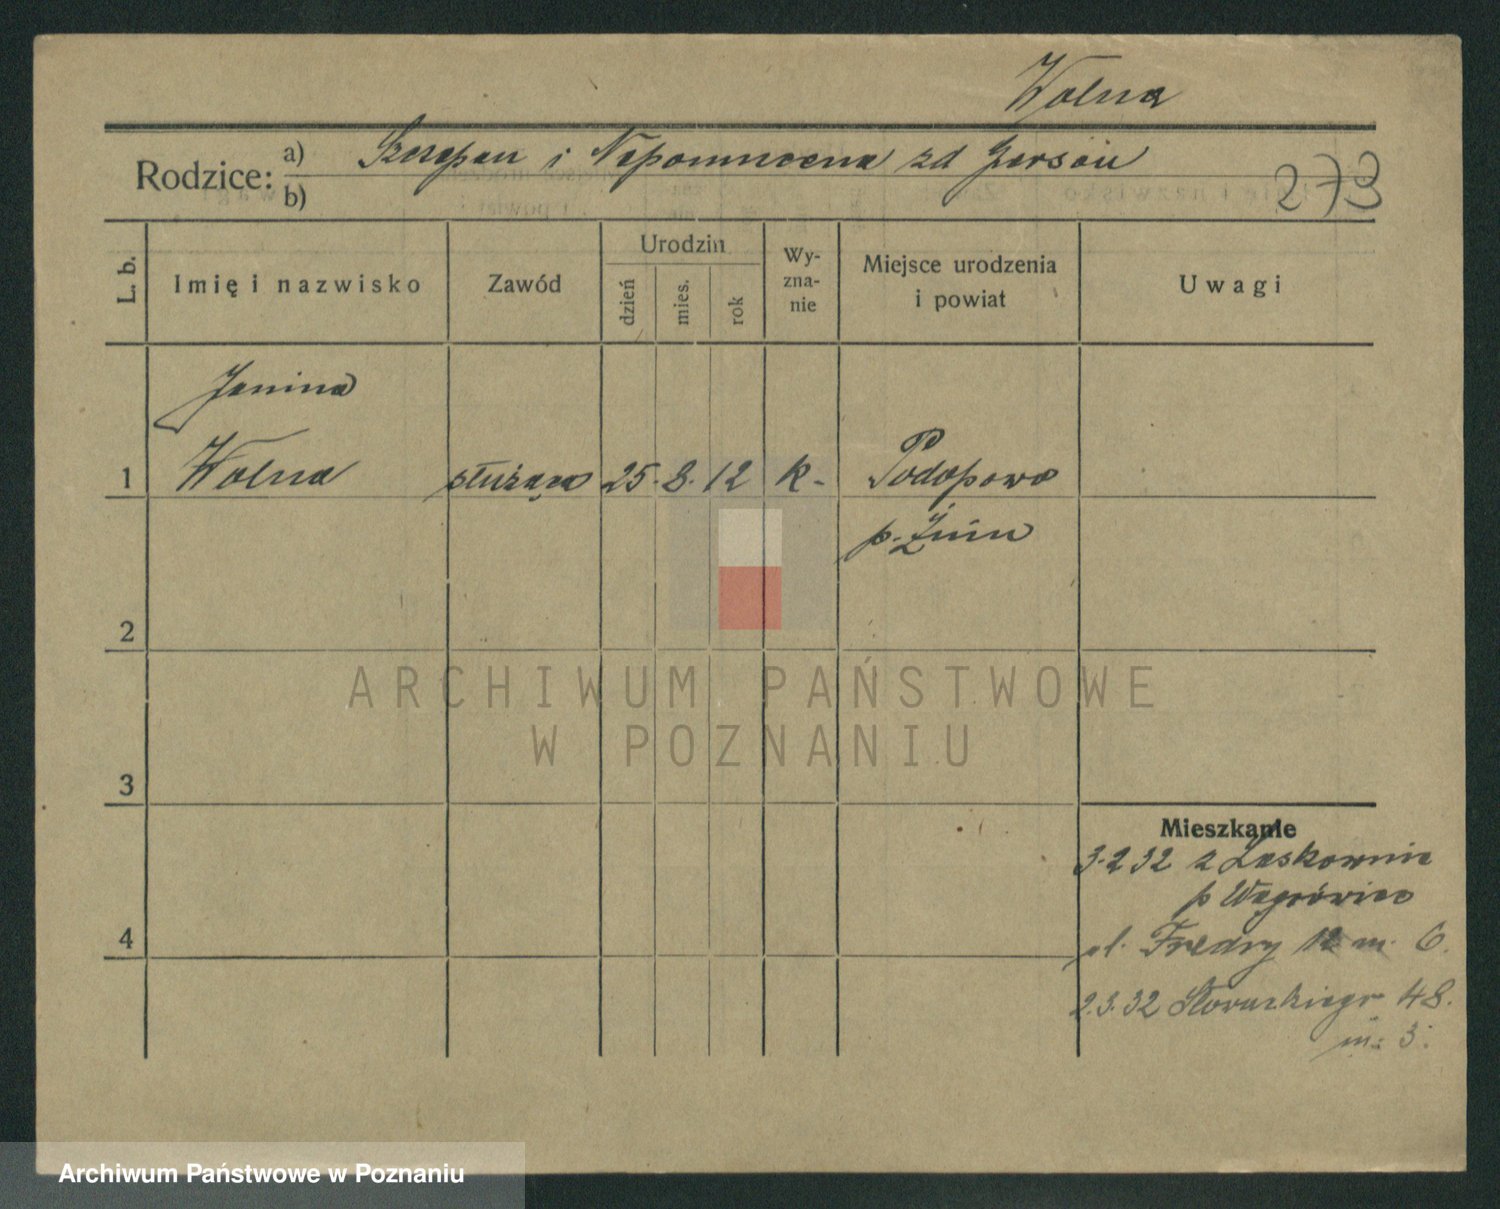 Wolna
Rodzice: a) Szczepan i Nepomucena zd
b)
273
L. b.
Imię i nazwisko
Zawód
Urodzin
dzień
mies.
rok
Wy-
zna-
nie
Miejsce urodzenia
i powiat
Uwagi
Janina
1 Wolna służąca 25. 8. 12 k- Podopowo
p. Żnin
2
3
4
Mieszkanie
3.2 32 z Laskownic
p Wągrówiec
ul. Fredry 12 m. 6.
2.3.32 Słowackiego 48.
m. 3.
ARCHIWUM PAŃSTWOWE
W POZNANIU
Archiwum Państwowe w Poznaniu